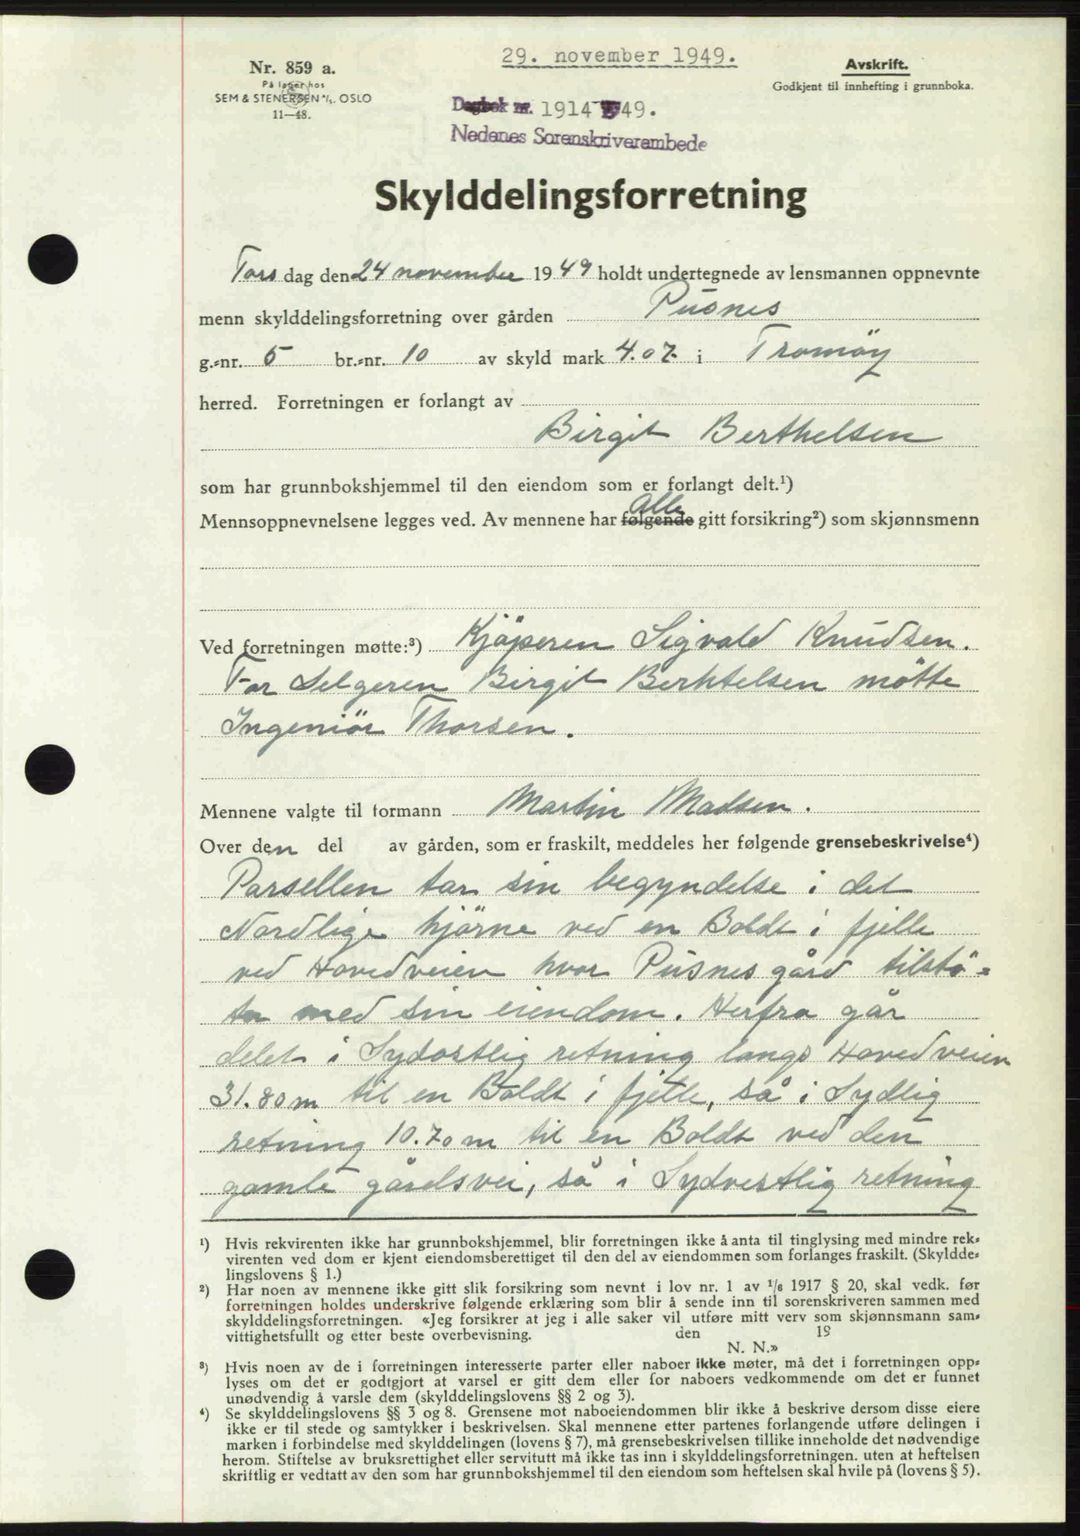 29. november 1949.
Nr. 859 a.
På lager hos
SEM & STENERSEN A/S. OSLO
11—48.
Avskrift.
Godkjent til innhefting i grunnboka.
Dagbok nr. 1914 49.
Nedenes Sorenskriverembede
Skylddelingsforretning
Tors dag den 24 november 1949 holdt undertegnede av lensmannen oppnevnte
menn skylddelingsforretning over gården Pusnes
g.-nr. 5 br.-nr. 10 av skyld mark 4.07 i Tromöy
herred. Forretningen er forlangt av
Birgit Berthelsen
som har grunnbokshjemmel til den eiendom som er forlangt delt.¹)
Alle
Mennsoppnevnelsene legges ved. Av mennene har følgende gitt forsikring²) som skjønnsmenn
Ved forretningen møtte:³) Kjöperen Sigvald Knudsen.
For Selgeren Birgit Berhtelsen mötte
Ingeniör Thorsen.
Mennene valgte til formann Martin Madsen.
Over den del av gården, som er fraskilt, meddeles her følgende grensebeskrivelse⁴)
Parsellen tar sin begyndelse i det
Nordlige hjörne ved en Boldt i fjelle
ved Hovedveien hvor Pusnes gård tilstö=
ter med sin eiendom. Herfra går
delet i Sydostlig retning langs Hovedveien
31.80 m til en Boldt i fjelle, så i Sydlig
retning 10.70 m til en Boldt ved den
gamle gårdsvei, så i Sydvestlig retning
¹) Hvis rekvirenten ikke har grunnbokshjemmel, blir forretningen ikke å anta til tinglysing med mindre rek-
virenten ved dom er kjent eiendomsberettiget til den del av eiendommen som forlanges fraskilt. (Skyldde-
lingslovens § 1.)
²) Har noen av mennene ikke gitt slik forsikring som nevnt i lov nr. 1 av 1/6 1917 § 20, skal vedk. før
forretningen holdes underskrive følgende erklæring som blir å sende inn til sorenskriveren sammen med
skylddelingsforretningen. «Jeg forsikrer at jeg i alle saker vil utføre mitt verv som skjønnsmann sam-
vittighetsfullt og etter beste overbevisning. den 19
N. N.»
³) Hvis noen av de i forretningen interesserte parter eller naboer ikke møter, må det i forretningen opp-
lyses om det er godtgjort at varsel er gitt dem eller for naboers vedkommende om det er funnet
unødvendig å varsle dem (skylddelingslovens §§ 2 og 3).
⁴) Se skylddelingslovens §§ 3 og 8. Grensene mot naboeiendommen blir ikke å beskrive dersom disse eiere
ikke er til stede og samtykker i beskrivelsen. Skal mennene etter partenes forlangende utføre delingen i
marken i forbindelse med skylddelingen (lovens § 7), må grensebeskrivelsen tillike inneholde det nødvendige
herom. Stiftelse av bruksrettighet eller servitutt må ikke tas inn i skylddelingsforretningen. uten at heftelsen
skriftlig er vedtatt av den som har grunnbokshjemmel til den eiendom som heftelsen skal hvile på (lovens § 5).